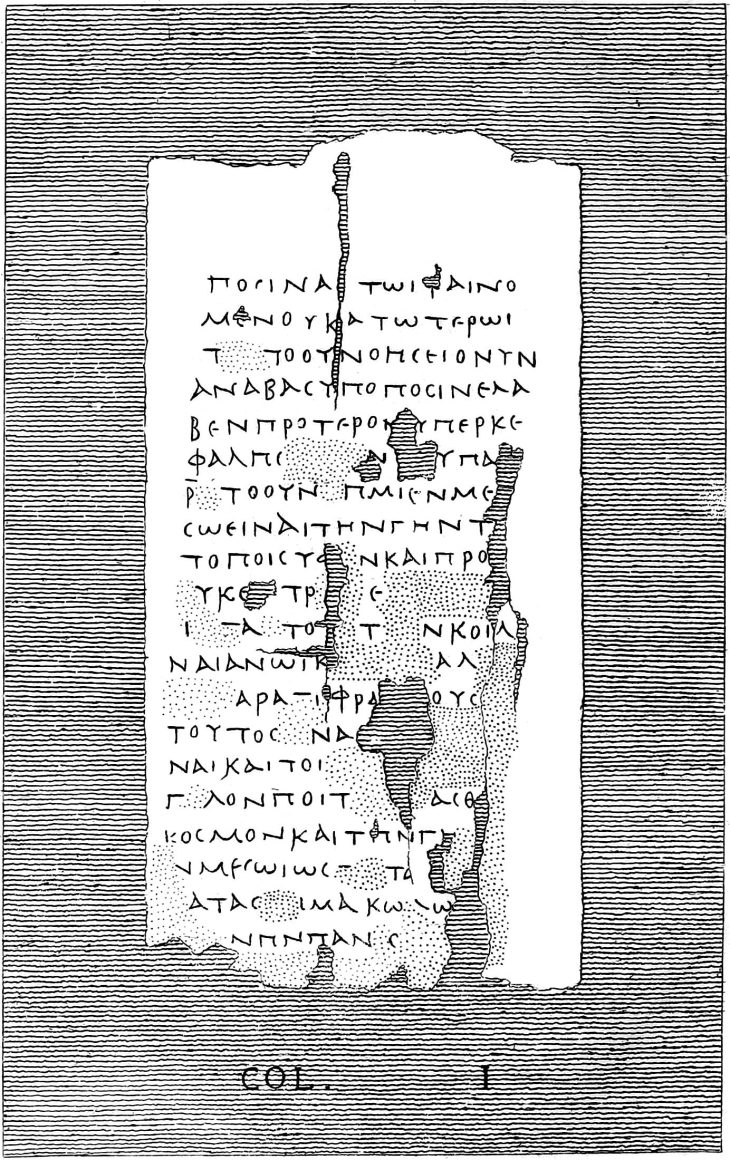 ΠΟΣΙΝΑ ΤΩΙ ΦΑΙΝΟ
ΜΕΝΟΥ ΚΑΤΩΤΕΡΩΙ
Τ ΠΟΟΥΝΟΗΣΕΙΟΝΥΝ
ΑΝΑΒΑΣΥΠΟΠΟΣΙΝΕΛΑ
ΒΕΝΠΡΟΤΕΡΟΝ ΥΠΕΡΚΕ
ΦΑΛΠΣ ΑΝ ΥΠΑ
Ρ ΤΟΟΥΝ ΠΜΙΕΝΜΕ
ΣΩΕΙΝΑΙΤΗΝΓΗΝΤ
ΤΟΠΟΙΣΥΦ ΝΚΑΙΠΡΟ
ΥΚΕ ΤΡ Ε
Ι ΤΑ ΤΟ Τ ΝΚΟΙΛ
ΝΑΙΑΝΩΙΚ ΑΛ
ΑΡΑΤΙΦΡΑ ΟΥΣ
ΤΟΥΤΟΣ ΝΑ
ΝΑΙΚΑΙΤΟΙ
Γ ΛΟΝΠΟΙΤ ΑΣΘ
ΚΟΣΜΟΝΚΑΙΤΗΝΓΗ
ΝΜΕΣΩΙΩΣ ΤΑ
ΑΤΑΣ ΙΜΑΚΩ ΛΩ
ΝΠΝΠΑΝ Σ
COL. I